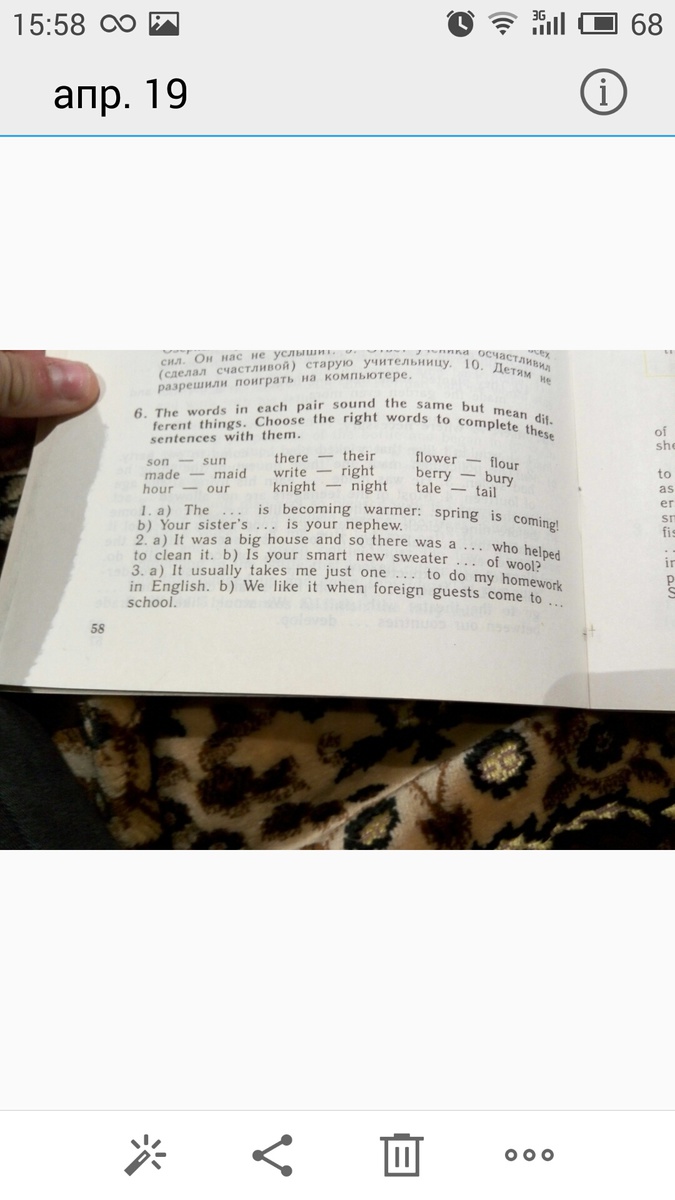 15:58 3G 68
апр. 19
всех
сил. Он нас не услышит. осчастливил
(сделал счастливой) старую учительницу. 10. Детям не
разрешили поиграть на компьютере.
6. The words in each pair sound the same but mean dif-
ferent things. Choose the right words to complete these
sentences with them.
son — sun there — their flower — flour
made — maid write — right berry — bury
hour — our knight — night tale — tail
1. a) The ... is becoming warmer: spring is coming!
b) Your sister's ... is your nephew.
2. a) It was a big house and so there was a ... who helped
to clean it. b) Is your smart new sweater ... of wool?
3. a) It usually takes me just one ... to do my homework
in English. b) We like it when foreign guests come to ...
school.
58
of
she
to
as